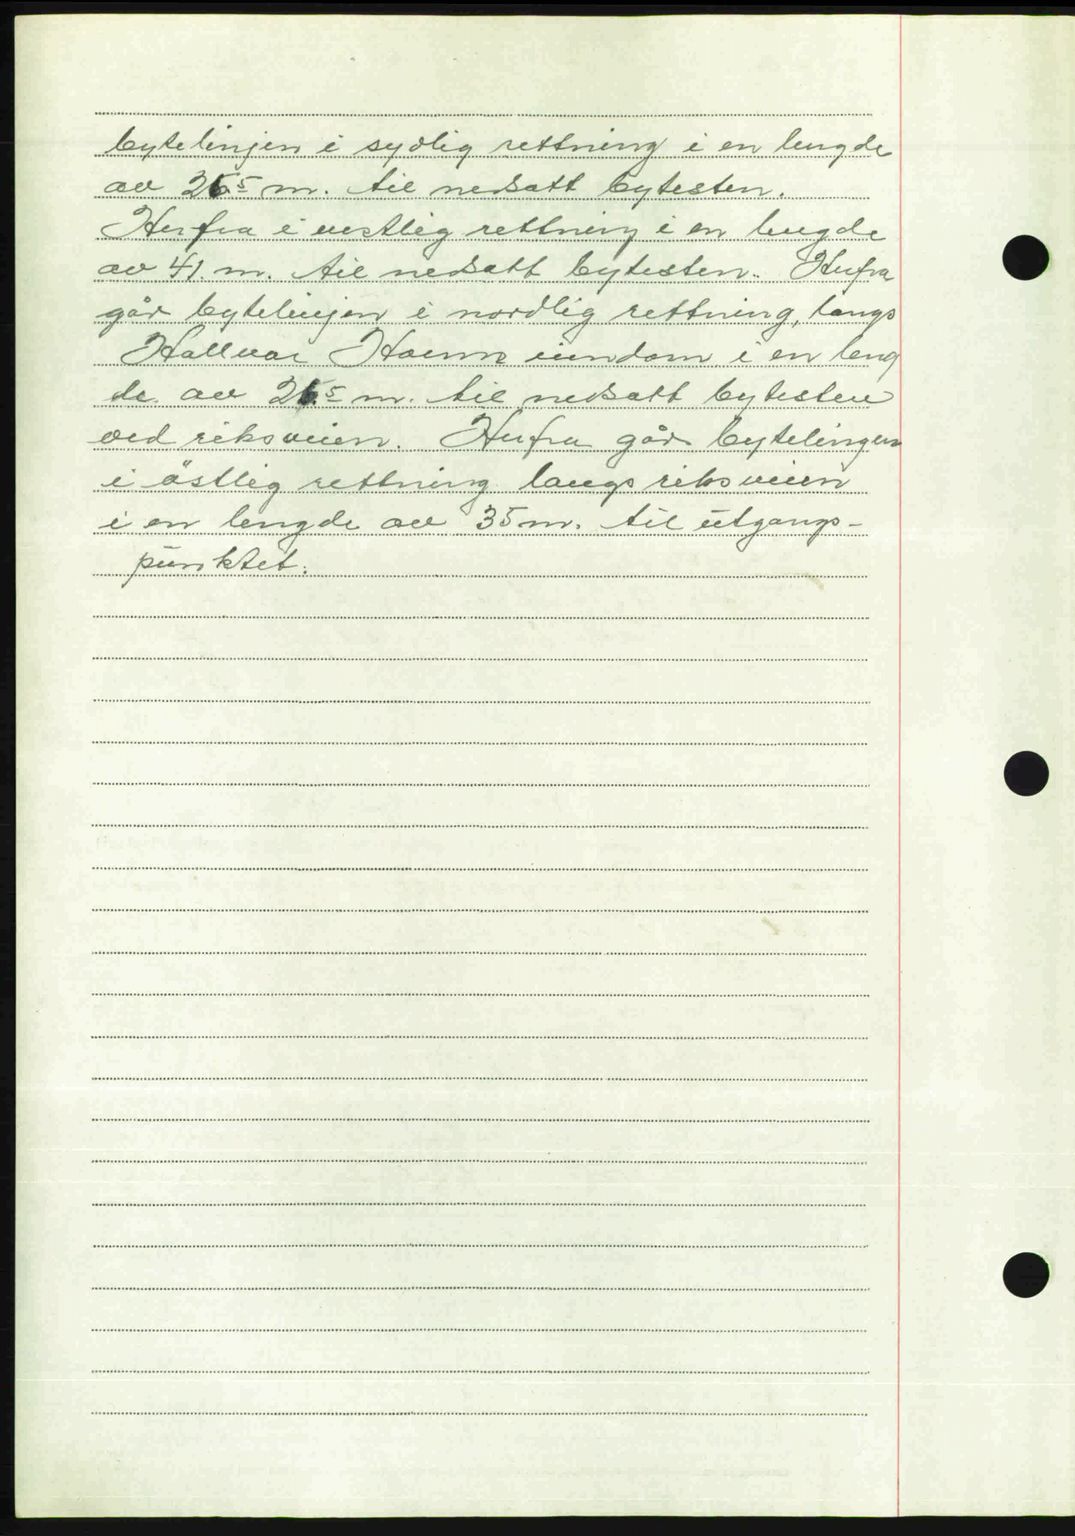 bytelinjen i sydlig rettning i en lengde
av 26⁵ m. til nedsatt bytesten.
Herfra i vestlig rettning i en lengde
av 41. m. til nedsatt bytesten. Herfra
går bytelinjen i nordlig rettning, langs
Hallvar eiendom i en leng
de. av 26.⁵ m. til nedsatt bytesten
ved riksveien. Herfra går bytelingen
i östlig rettning langs riksveien
i en lengde av 35 m. til utgangs-
punktet.